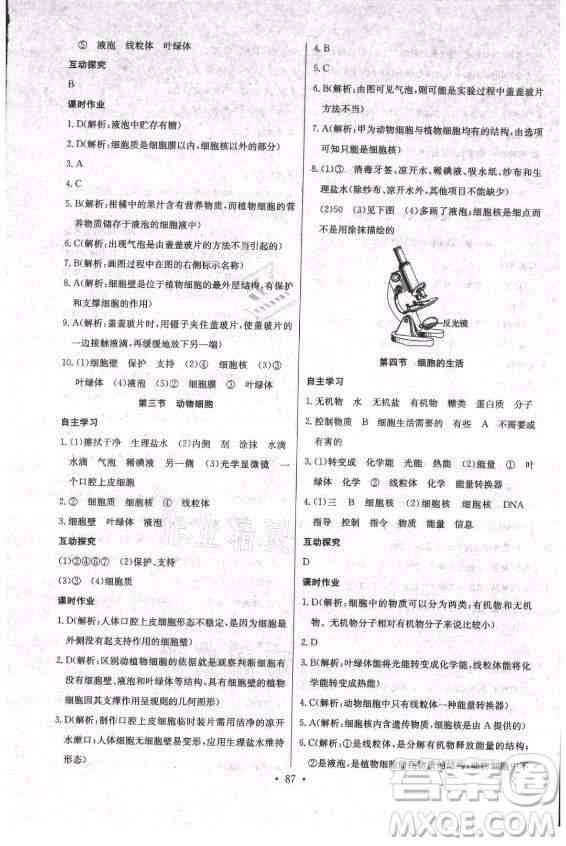 ⑤ 液泡 线粒体 叶绿体
互动探究
B
课时作业
1. D(解析:液泡中贮存有糖)
2. D(解析:细胞质是细胞膜以内、细胞核以外的部分)
3. A
4. C
5. B(解析:柑橘中的果汁含有营养物质,而植物细胞的营
养物质储存于液泡的细胞液中)
6. C(解析:出现气泡是由盖盖玻片的方法不当引起的)
7. B(解析:画图过程中在图的右侧标示名称)
8. C(解析:细胞壁是位于植物细胞的最外层结构,有保护
和支撑细胞的作用)
9. A(解析:盖盖玻片时,用镊子夹住盖玻片,将盖玻片的
一边接触液滴,再缓缓地放另一端)
10. (1)细胞壁 保护 支持 (2)④ 细胞核 (3)③
叶绿体 (4)③ ⑤
第三节 动物细胞
自主学习
1. (1)擦拭干净 生理盐水 (2)内侧 刮 涂抹 水滴
水滴 气泡 稀碘液 另一侧 (3)光学显微镜 一
个口腔上皮细胞
2. ② ⑤ 细胞质 细胞核 ④ 线粒体
3. 细胞壁 叶绿体 液泡
互动探究
(1)②④⑥⑦ (2)保护、支持
(3)③ ④ 细胞质
课时作业
1. D(解析:人体口腔上皮细胞形态不稳定,是因为细胞外
没有起支持作用的细胞壁)
2. D(解析:区别动植物细胞的依据就是观察判断细胞有
无细胞壁、液泡和叶绿体等结构,而植物细胞由于有细
胞壁的支撑作用呈规则的几何图形)
3. D(解析:制作口腔上皮细胞临时装片需用洁净的凉开
水漱口;人体细胞无细胞壁易变形,应用生理盐水维持
形态)
4. B
5. C
6. B(解析:由图可见气泡,则是实验过程中盖盖玻片
方法不当)
7. A(解析:甲为动物细胞与植物细胞均有的结构,由选项
可知为细胞核)
8. (1)③ 消毒牙签、凉开水、稀碘液、吸水纸、纱布和生
理盐水(除纱布、凉开水外,其他不能缺少)
(2)50 (3)见下图 (4)多画了液泡;细胞质与细胞核
不是用涂抹描绘的
反光镜
第四节 细胞的生活
自主学习
1. 无机物 水 无机盐 有机物 糖类 蛋白质 分子
2. 控制物质 B A 细胞不需要或有害 细胞需要或
有害的
3. (1)转变成 化学能 能源 (2)能量 (3)① ① 叶
绿体 化学能 ② 化学能 能量转换器
4. (1)三 B 细胞核 细胞核 细胞核 DNA
指导 控制 指令 物质 能量 信息
互动探究
D
课时作业
1. D(解析:细胞中的物质可以分为两类:有机物和无机
物。无机物分子相对有机物分子比较小)
2. D
3. B(解析:叶绿体能将光能转变成化学能,线粒体能将化
学能转变成其他形式的能)
4. A(解析:动物细胞中只有线粒体一种能量转换器)
5. C(解析:细胞内含遗传物质,细胞是由 A 提供的)
6. C(解析:①是线粒体,分解有机物释放能量的结构;
②是液泡,是植物细胞储存物质的结构,动物细胞中不
87
答案圈
MXQE.COM